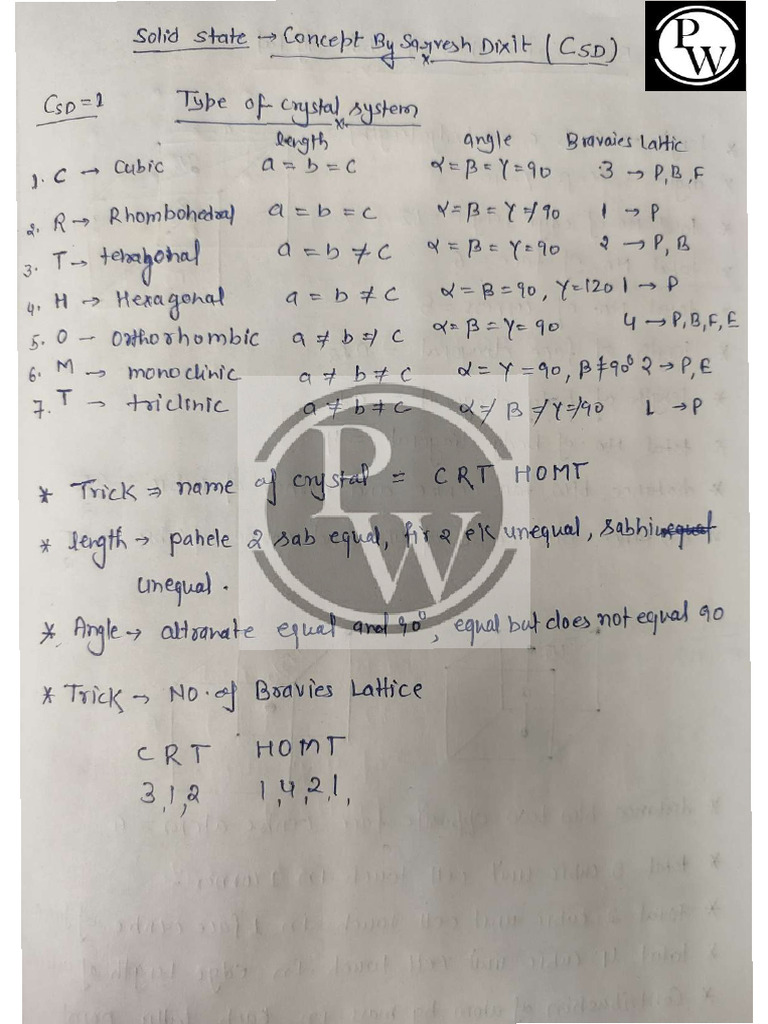 Solid state → Concept By Sarvesh Dixit (CSD)
PW
CSD = 1 Type of crystal system
length angle Bravaies Lattic
1. C → Cubic a = b = c α = β = γ = 90 3 → P, B, F
2. R → Rhombohedral a = b = c α = β = γ ≠ 90 1 → P
3. T → tetragonal a = b ≠ c α = β = γ = 90 2 → P, B
4. H → Hexagonal a = b ≠ c α = β = 90, γ = 120 1 → P
5. O – Orthorhombic a ≠ b ≠ c α = β = γ = 90 4 → P, B, F, E
6. M → monoclinic a ≠ b ≠ c α = γ = 90, β ≠ 90° 2 → P, E
7. T → triclinic a ≠ b ≠ c α ≠ β ≠ γ ≠ 90 1 → P
PW
* Trick ⇒ name of crystal = CRT HOMT
* length → pahele 2 sab equal, fir 2 ek unequal, sabhi unequal
unequal.
* Angle → altranate equal and 90°, equal but does not equal 90
* Trick → NO. of Bravies Lattice
CRT HOMT
3,1,2 1,4,2,1,